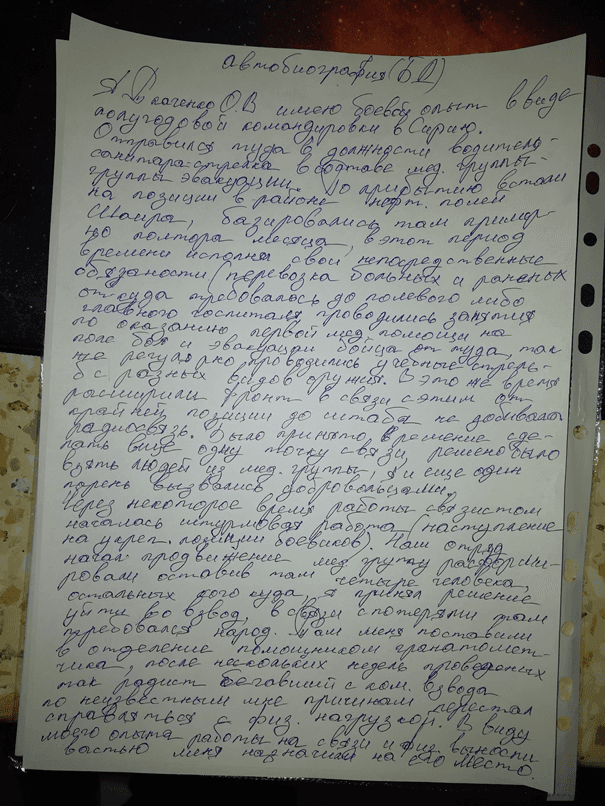 автобиография (Б Д)
Я Ткаченко О.В имею боевой опыт в виде
полугодовой командировки в Сирию.
Отправился туда в должности водитель-
санитар-стрелка в составе мед. группы-
группы эвакуации. По прибытию встали
на позиции в районе нефт. полей
Шаира, базировались там пример-
но полтора месяца, в этот период
времени исполнял свои непосредственные
обязаности (перевозка больных и раненых
откуда требовалось до полевого либо
главного госпиталя, проводились занятия
по оказанию первой мед. помощи на
поле боя и эвакуации бойца оттуда, так
же регулярно проводились учебные стрель-
бы с разных видов оружия. В это же время
расширили фронт в связи с этим от
крайней позиции до штаба не добивала
радиосвязь. Было принято решение сде-
лать еще одну точку связи, решено было
взять людей из мед. группы, я и еще один
парень вызвались добровольцами,
Через некоторое время работы связистом
началась штурмовая работа (наступление
на укреп. позиции боевиков). Наш отряд
начал продвижение мед. группу расформи-
ровали оставив там четыре человека,
остальных кого куда, я принял решение
уйти во взвод, в связи с потерями там
требовался народ. Там меня поставили
в отделение помощником гранатомет-
чика, после нескольких недель проведеных
так радист бегавший с ком. взвода
по неизвестным мне причинам перестал
справляться с физ. нагрузкой. В виду
моего опыта работы на связи и физ. выносли
востью меня назначили на его место.